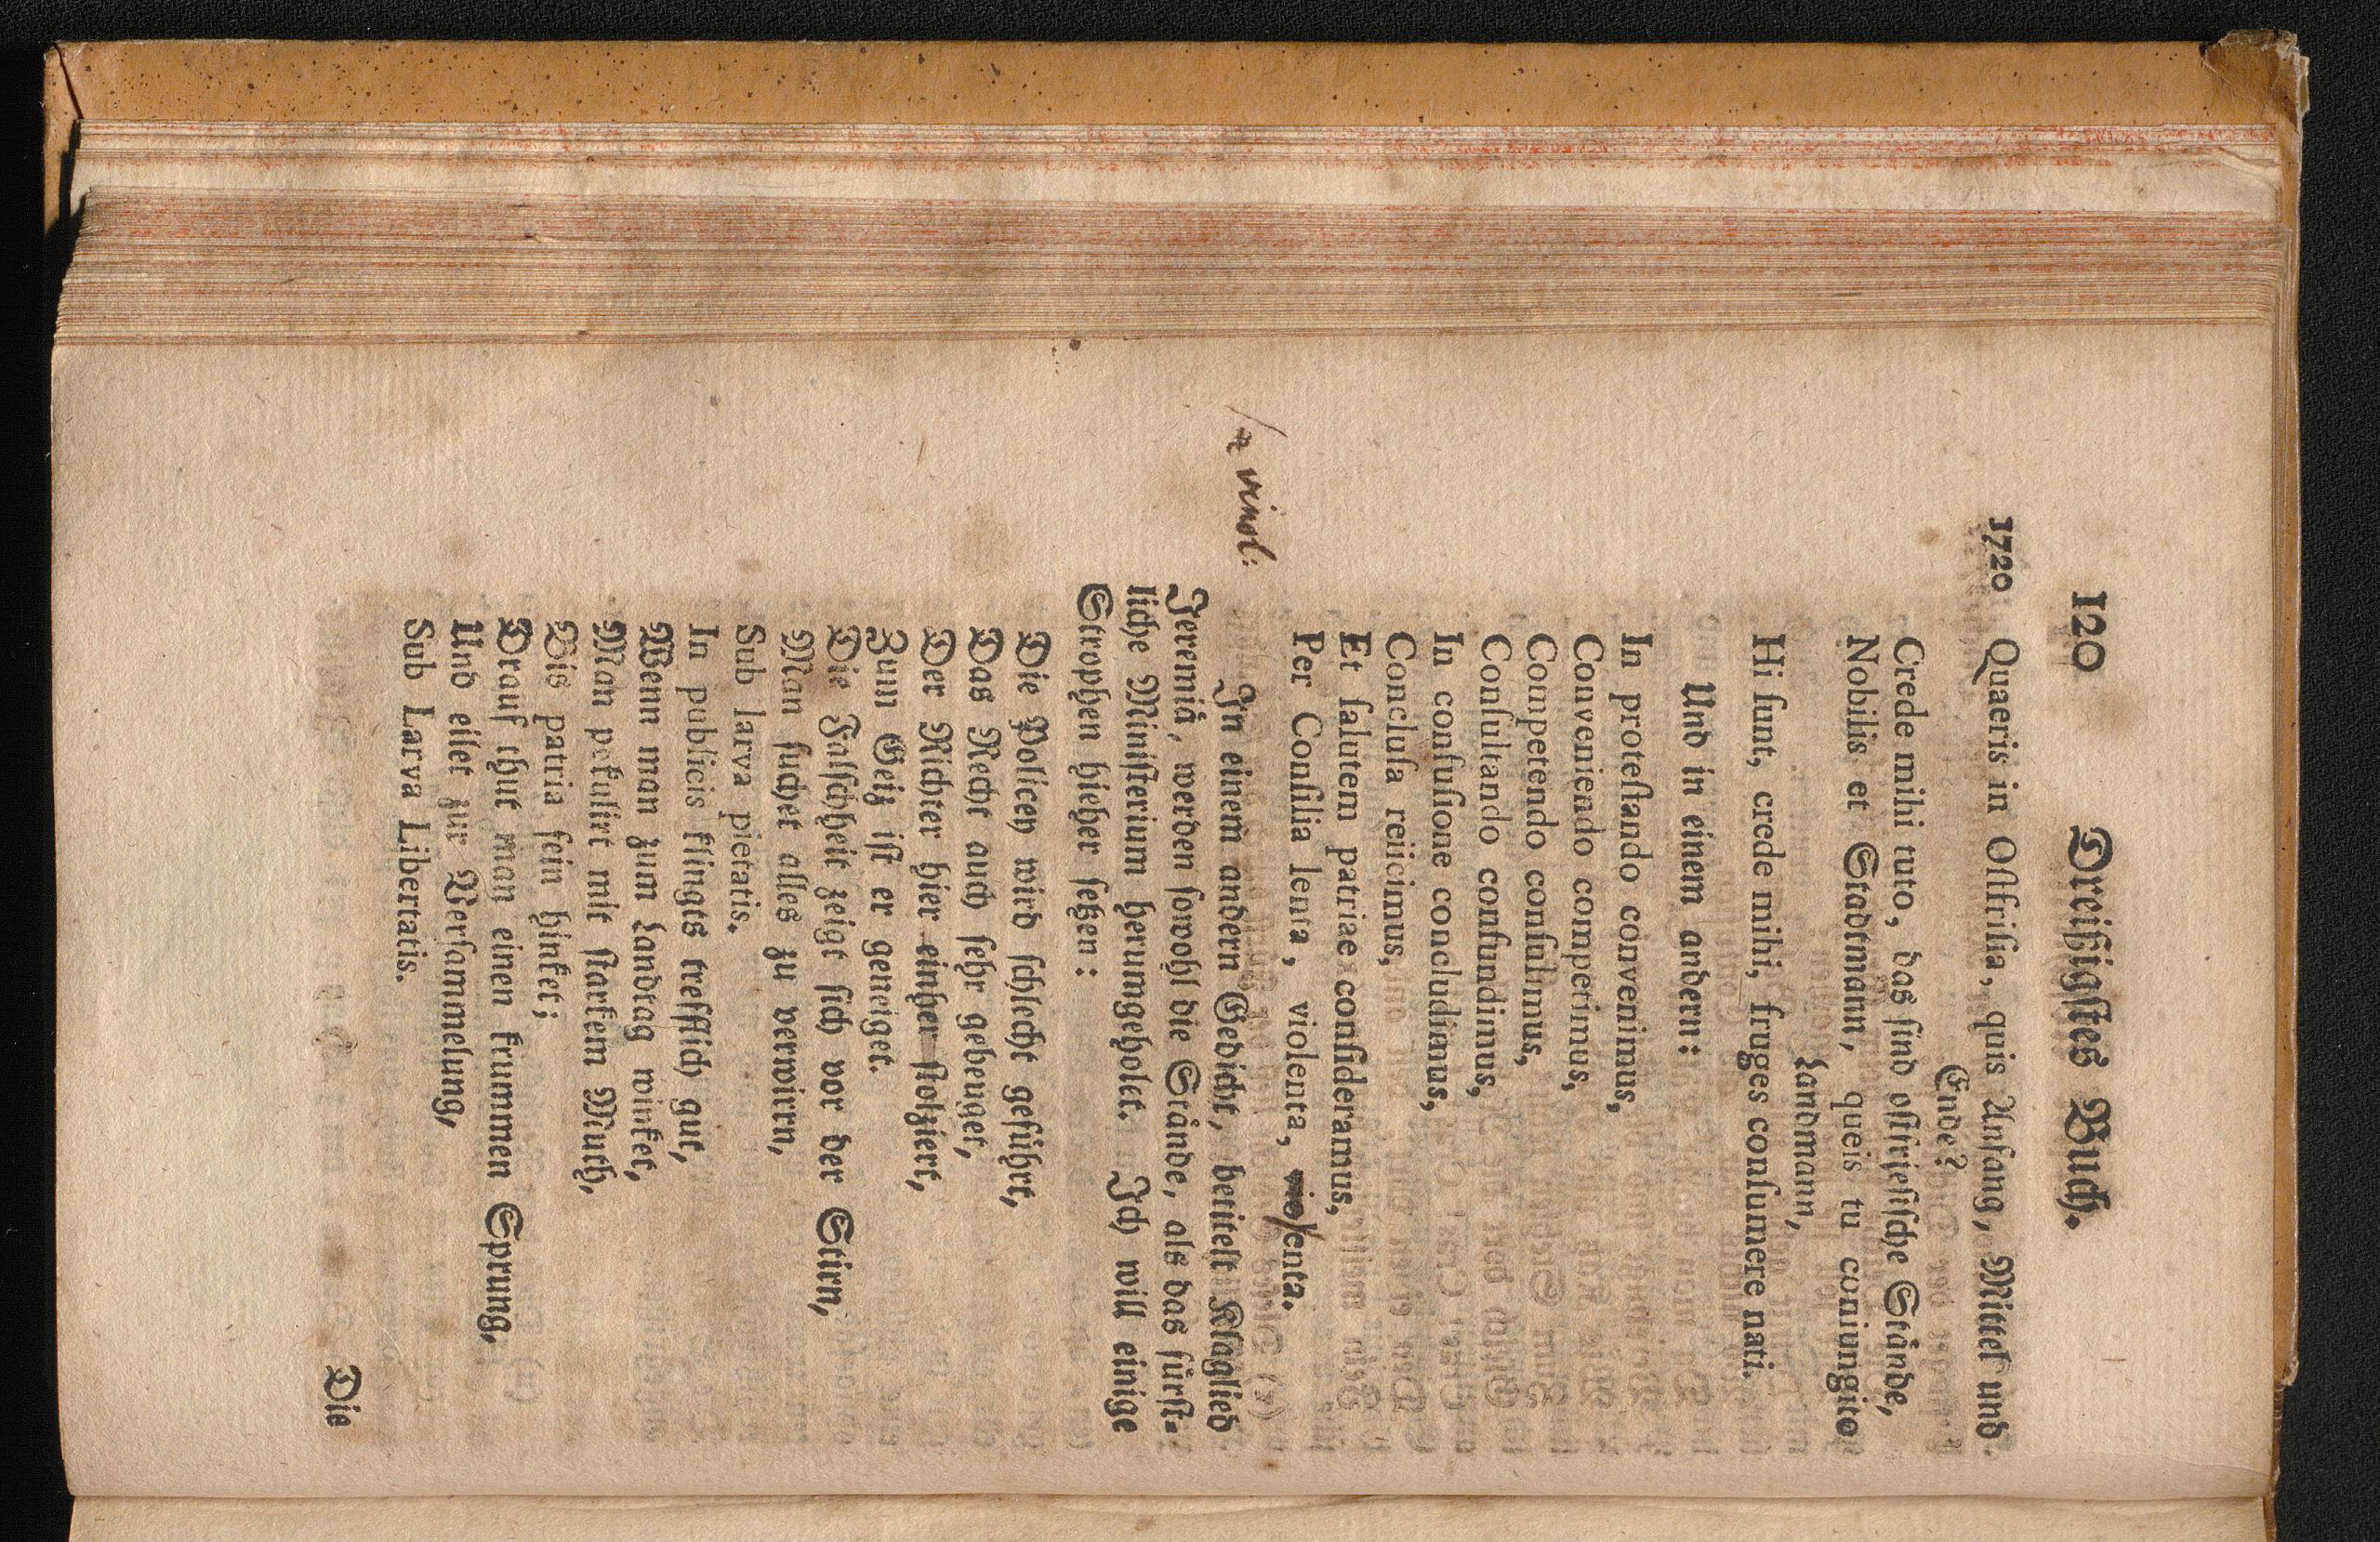 120 Dreißigstes Buch.
1720 Quaeris in Ostfrisia, quis Anfang, Mittel und
Ende?
Crede mihi tuto, das sind ostfriesische Stände,
Nobilis et Stadtmann, queis tu coniungito
Landmann,
Hi sunt, crede mihi, fruges consumere nati.
Und in einem andern:
In protestando convenimus,
Conveniendo competimus,
Competendo consulimus,
Consultando confundimus,
In confusione concludimus,
Conclusa reiicimus,
Et salutem patriae consideramus,
Per Consilia lenta, violenta, violenta.
/a vinol:
In einem andern Gedicht, betitelt Klaglied
Jeremiä, werden sowohl die Stände, als das fürst-
liche Ministerium herumgeholet. Ich will einige
Strophen hieher setzen:
Die Policey wird schlecht geführt,
Das Recht auch sehr gebeuget,
Der Richter hier einher stolziert,
Zum Geiz ist er geneiget.
Die Falschheit zeigt sich vor der Stirn,
Man suchet alles zu verwirrn,
Sub larva pietatis.
In publicis klingts trefflich gut,
Wenn man zum Landtag winket,
Man pokulirt mit starkem Muth,
Bis patria fein hinket;
Drauf thut man einen krummen Sprung,
Und eilet zur Versammelung,
Sub Larva Libertatis.
Die